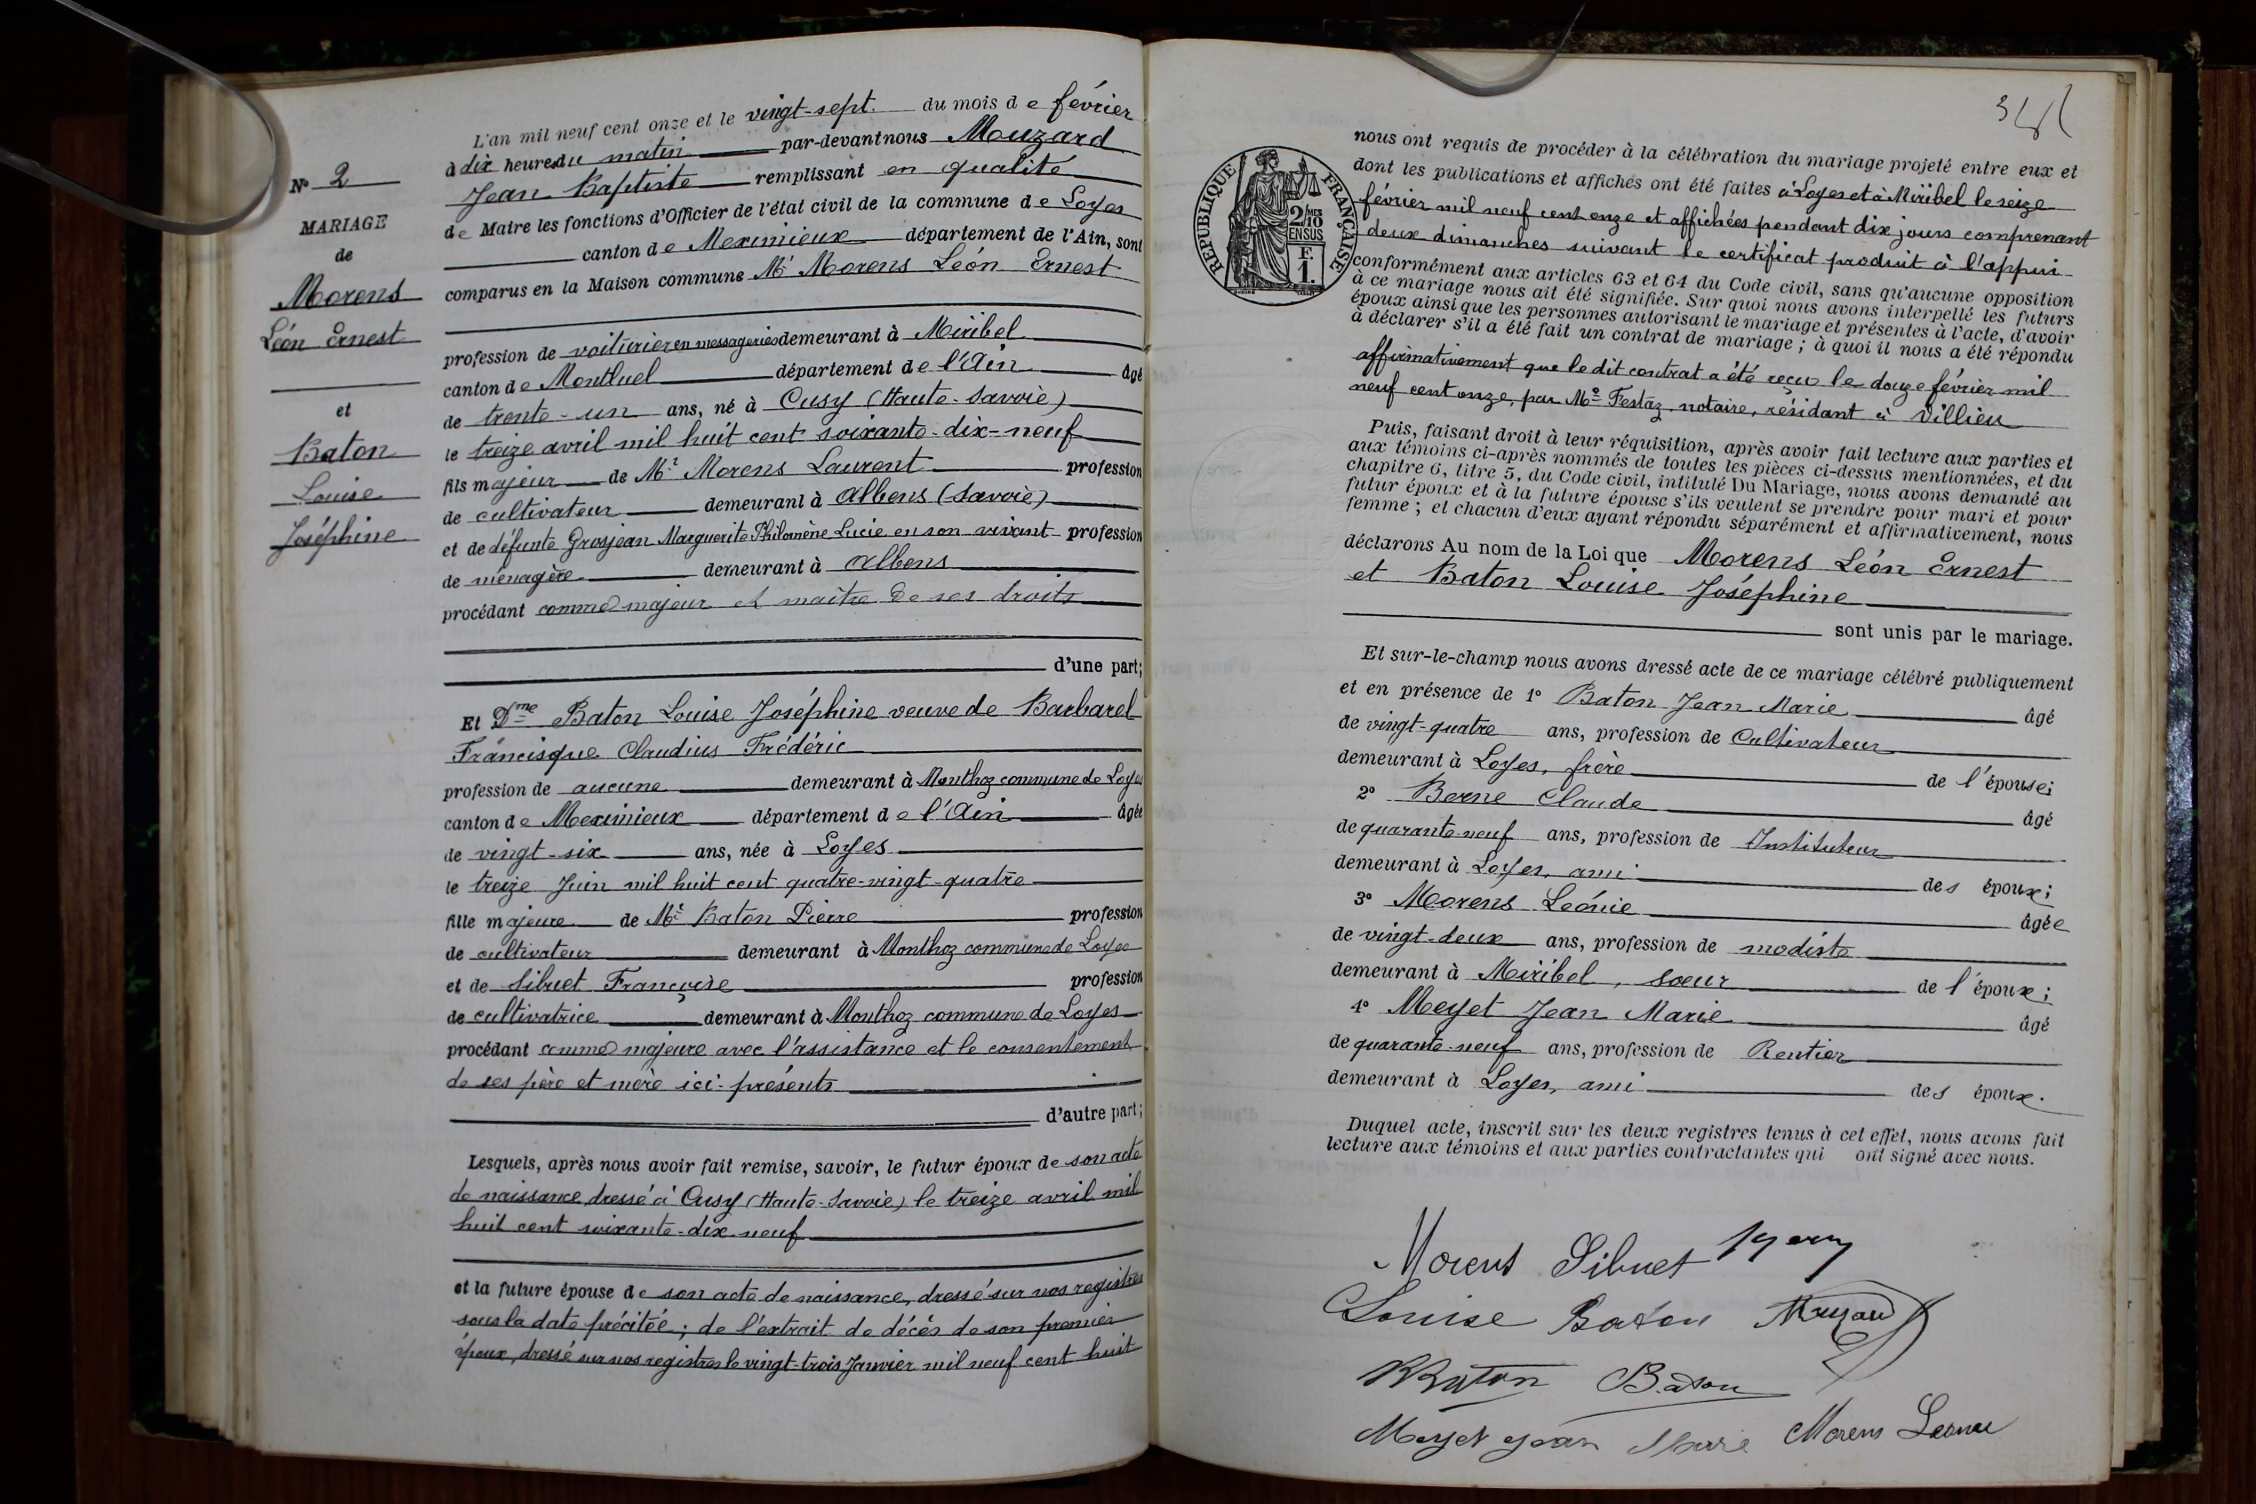 N° 2
MARIAGE
de
Morens
Léon Ernest
et
Baton
Louise
Joséphine
L'an mil neuf cent onze et le vingt-sept. du mois de février
à dix heures du matin par-devant nous Mouzard
Jean Baptiste remplissant en qualité
de Maire les fonctions d'Officier de l'état civil de la commune de Loyes
canton de Meximieux département de l'Ain, sont
comparus en la Maison commune Mr Morens Léon Ernest
profession de voiturier en messageries demeurant à Miribel
canton de Montluel département de l'Ain âgé
de trente-un ans, né à Cusy (Haute-Savoie)
le treize avril mil huit cent soixante-dix-neuf
fils majeur de Mr Morens Laurent profession
de cultivateur demeurant à Albens (Savoie)
et de défunte Grosjean Marguerite Philomène Lucie en son vivant profession
de ménagère demeurant à Albens
procédant comme majeur et maitre de ses droits
d'une part;
Et Dme Baton Louise Joséphine veuve de Barbarel
Francisque Claudius Frédéric
profession de aucune demeurant à Monthoz commune de Loyes
canton de Meximieux département de l'Ain âgée
de vingt-six ans, née à Loyes
le treize Juin mil huit cent quatre-vingt-quatre
fille majeure de Mr Baton Pierre profession
de cultivateur demeurant à Monthoz commune de Loyes
et de Sibuet Françoise profession
de cultivatrice demeurant à Monthoz commune de Loyes
procédant comme majeure avec l'assistance et le consentement
de ses père et mère ici-présents
d'autre part;
Lesquels, après nous avoir fait remise, savoir, le futur époux de son acte
de naissance dressé à Cusy (Haute-Savoie) le treize avril mil
huit cent soixante-dix-neuf
et la future épouse de son acte de naissance, dressé sur nos registres
sous la date précitée; de l'extrait de décès de son premier
époux, dressé sur nos registres le vingt-trois Janvier mil neuf cent huit
RÉPUBLIQUE FRANÇAISE
2/10
MES
EN SUS
F.
1.
nous ont requis de procéder à la célébration du mariage projeté entre eux et
dont les publications et affiches ont été faites à Loyes et à Miribel le seize
février mil neuf cent onze et affichées pendant dix jours comprenant
deux dimanches suivant le certificat produit à l'appui
conformément aux articles 63 et 64 du Code civil, sans qu'aucune opposition
à ce mariage nous ait été signifiée. Sur quoi nous avons interpellé les futurs
époux ainsi que les personnes autorisant le mariage et présentes à l'acte, d'avoir
à déclarer s'il a été fait un contrat de mariage; à quoi il nous a été répondu
affirmativement que le dit contrat a été reçu le douze février mil
neuf cent onze, par Me Festaz, notaire, résidant à Villieu
Puis, faisant droit à leur réquisition, après avoir fait lecture aux parties et
aux témoins ci-après nommés de toutes les pièces ci-dessus mentionnées, et du
chapitre 6, titre 5, du Code civil, intitulé Du Mariage, nous avons demandé au
futur époux et à la future épouse s'ils veulent se prendre pour mari et pour
femme; et chacun d'eux ayant répondu séparément et affirmativement, nous
déclarons Au nom de la Loi que Morens Léon Ernest
et Baton Louise Joséphine
sont unis par le mariage.
Et sur-le-champ nous avons dressé acte de ce mariage célébré publiquement
et en présence de 1° Baton Jean Marie âgé
de vingt-quatre ans, profession de Cultivateur
demeurant à Loyes, frère de l'épouse;
2° Berne Claude âgé
de quarante-neuf ans, profession de Instituteur
demeurant à Loyes, ami des époux;
3° Morens Léonie âgée
de vingt-deux ans, profession de modiste
demeurant à Miribel, sœur de l'époux;
4° Meyet Jean Marie âgé
de quarante-neuf ans, profession de Rentier
demeurant à Loyes, ami des époux.
Duquel acte, inscrit sur les deux registres tenus à cet effet, nous avons fait
lecture aux témoins et aux parties contractantes qui ont signé avec nous.
Morens Sibuet
Louise Baton Mouzard
Baton Baton
Meyet Jean Marie Morens Léonie